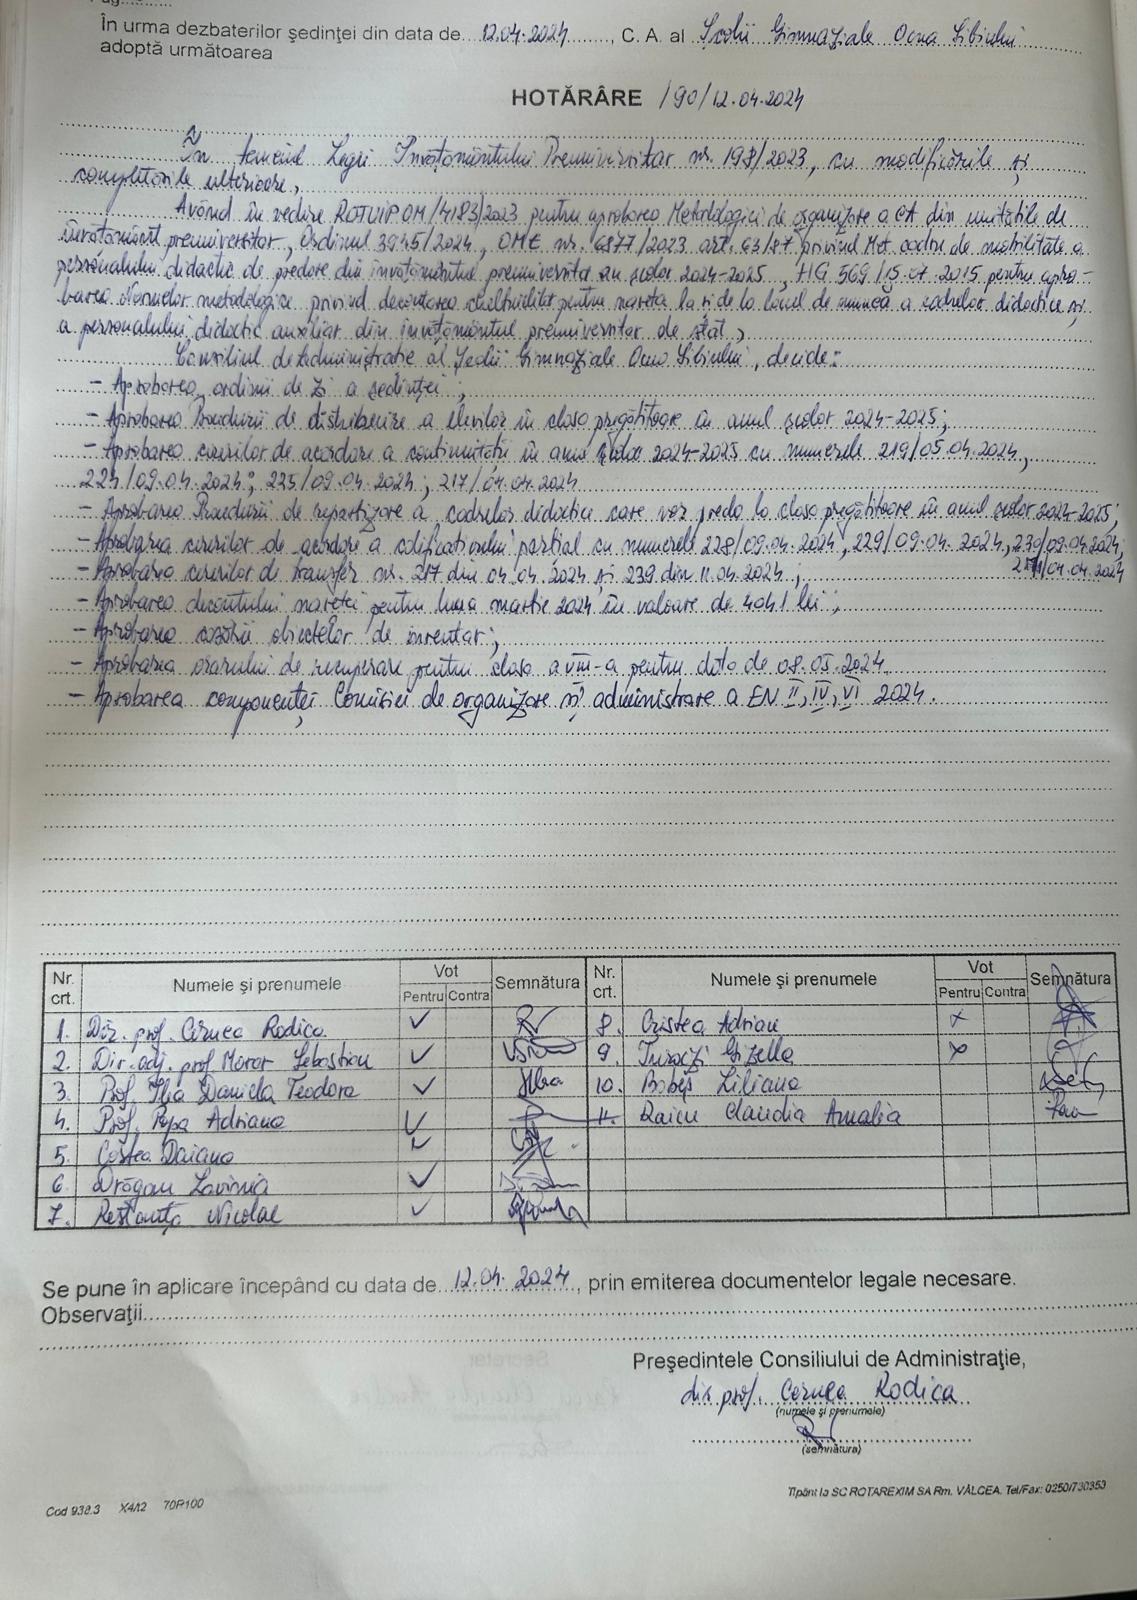 În urma dezbaterilor şedinţei din data de 12.04.2024, C. A. al Școlii Gimnaziale Ocna Sibiului
adoptă următoarea
HOTĂRÂRE /90/12.04.2024
În temeiul Legii Învățământului Preuniversitar nr. 198/2023, cu modificările și
completările ulterioare,
Având în vedere ROFUIP OM/4183/2023 pentru aprobarea Metodologiei de organizare a CA din unitățile de
învățământ preuniversitar, Ordinul 3945/2024, OME nr. 6877/2023 art. 63/87 privind Met. cadru de mobilitate a
personalului didactic de predare din învățământul preuniversitar an școlar 2024-2025, HG 569/15.07.2015 pentru apro-
barea Normelor metodologice privind decontarea cheltuielilor pentru naveta la și de la locul de muncă a cadrelor didactice și
a personalului didactic auxiliar din învățământul preuniversitar de stat,
Consiliul de Administrație al Școlii Gimnaziale Ocna Sibiului, decide:
- Aprobarea ordinii de zi a ședinței;
- Aprobarea Procedurii de distribuire a elevilor în clasa pregătitoare în anul școlar 2024-2025;
- Aprobarea cererilor de acordare a continuității în anul școlar 2024-2025 cu numerele 219/05.04.2024,
224/09.04.2024; 225/09.04.2024; 217/04.04.2024
- Aprobarea Procedurii de repartizare a cadrelor didactice care vor preda la clasa pregătitoare în anul școlar 2024-2025;
- Aprobarea cererilor de acordare a calificativului parțial cu numerele 228/09.04.2024, 229/09.04.2024, 230/09.04.2024,
04.04.2024
- Aprobarea cererilor de transfer nr. 217 din 04.04.2024 și 239 din 11.04.2024;
- Aprobarea decontului navetei pentru luna martie 2024 în valoare de 4041 lei;
- Aprobarea casării obiectelor de inventar;
- Aprobarea orarului de recuperare pentru clasa a VIII-a pentru data de 08.05.2024
- Aprobarea componenței Comisiei de organizare și administrare a EN II, IV, VI 2024.
Nr. crt. Numele şi prenumele Vot Pentru Contra Semnătura Nr. crt. Numele şi prenumele Vot Pentru Contra Semnătura
1. Dir. prof. Cernea Rodica 8. Cristea Adrian
2. Dir. adj. prof Morar Sebastian 9. Gizella
3. Prof. Ilia Daniela Teodora 10. Bobeș Liliana
4. Prof. Popa Adriana 11. Raicu Claudia Amalia
5. Costea Daiana
6. Drăgan Lavinia
7. Nicolae
Se pune în aplicare începând cu data de 12.04.2024, prin emiterea documentelor legale necesare.
Observaţii
Preşedintele Consiliului de Administraţie,
dir. prof. Cernea Rodica
(numele şi prenumele)
(semnătura)
Cod 938.3 X4/12 70P100
Tipărit la SC ROTAREXIM SA Rm. VÂLCEA. Tel/Fax: 0250/730353